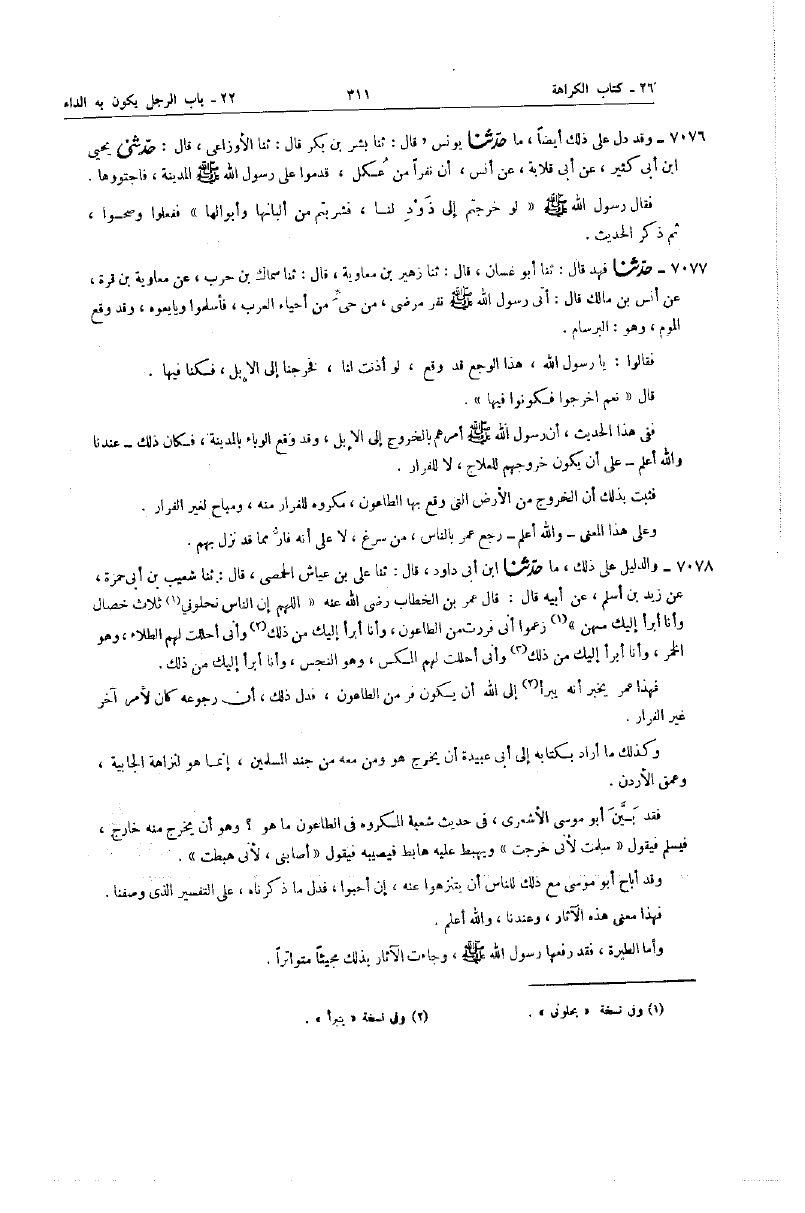 ٢٦ - كتاب الكراهة ٣١١ ٢٢ - باب الرجل يكون به الداء
٧٠٧٦ - وقد دل على ذلك أيضاً ، ما حدّثنا يونس ، قال : ثنا بشر بن بكر قال : ثنا الأوزاعى ، قال : حدّثنى يحيى
ابن أبى كثير ، عن أبى قلابة ، عن أنس ، أن نفراً من عُكل ، قدموا على رسول الله ﷺ المدينة ، فاجتووها .
فقال رسول الله ﷺ « لو خرجتم إلى ذَوْدٍ لنا ، فشربتم من ألبانها وأبوالها » ففعلوا وصحوا ،
ثم ذكر الحديث .
٧٠٧٧ - حدّثنا فهد قال : ثنا أبو غسان ، قال : ثنا زهير بن معاوية ، قال : ثنا سماك بن حرب ، عن معاوية بن قرة ،
عن أنس بن مالك قال : أتى رسول الله ﷺ نفر مرضى ، من حىٍّ من أحياء العرب ، فأسلموا وبايعوه ، وقد وقع
الموم ، وهو : البرسام .
فقالوا : يا رسول الله ، هذا الوجع قد وقع ، لو أذنت لنا ، فخرجنا إلى الإبل ، فكنا فيها .
قال « نعم اخرجوا فكونوا فيها » .
ففى هذا الحديث ، أن رسول الله ﷺ أمرهم بالخروج إلى الإبل ، وقد وقع الوباء بالمدينة ، فكان ذلك – عندنا
والله أعلم – على أن يكون خروجهم للعلاج ، لا للفرار .
فثبت بذلك أن الخروج من الأرض التى وقع بها الطاعون ، مكروه للفرار منه ، ومباح لغير الفرار .
وعلى هذا المعنى – والله أعلم – رجع عمر بالناس ، من سرغ ، لا على أنه فارٌّ مما قد نزل بهم .
٧٠٧٨ - والدليل على ذلك ، ما حدّثنا ابن أبى داود ، قال : ثنا على بن عياش الحمصى ، قال : ثنا شعيب بن أبى حمزة ،
عن زيد بن أسلم ، عن أبيه قال : قال عمر بن الخطاب رضى الله عنه « اللهم إن الناس نحلونى(١) ثلاث خصال
وأنا أبرأ إليك منهن »(١) زعموا أنى فررت من الطاعون ، وأنا أبرأ إليك من ذلك(٢) وأنى أحللت لهم الطلاء ، وهو
الخمر ، وأنا أبرأ إليك من ذلك(٣) وأنى أحللت لهم المكس ، وهو النجس ، وأنا أبرأ إليك من ذلك .
فهذا عمر يخبر أنه يبرأ(٢) إلى الله أن يكون فر من الطاعون ، فدل ذلك ، أن رجوعه كان لأمر آخر
غير الفرار .
وكذلك ما أراد بكتابه إلى أبى عبيدة أن يخرج هو ومن معه من جند المسلمين ، إنما هو لنزاهة الجابية ،
وعمق الأردن .
فقد بَيَّنَ أبو موسى الأشعرى ، فى حديث شعبة المكروه فى الطاعون ما هو ؟ وهو أن يخرج منه خارج ،
فيسلم فيقول « سلمت لأنى خرجت » ويهبط عليه هابط فيصيبه فيقول « أصابنى ، لأنى هبطت » .
وقد أباح أبو موسى مع ذلك للناس أن يتنزهوا عنه ، إن أحبوا ، فدل ما ذكرناه ، على التفسير الذى وصفنا .
فهذا معنى هذه الآثار ، وعندنا ، والله أعلم .
وأما الطيرة ، فقد رفعها رسول الله ﷺ ، وجاءت الآثار بذلك مجيئاً متواتراً .
(١) وفى نسخة « يحلونى » . (٢) وفى نسخة « يتبرأ » .